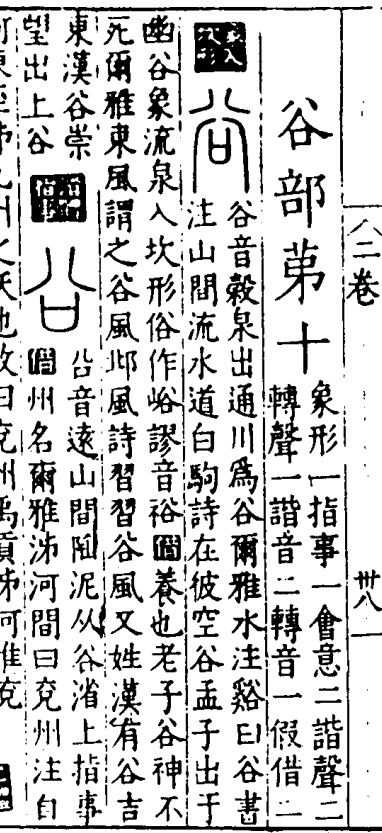 二卷
卅八
谷部第十
象形一指事一會意二諧聲二
轉聲一諧音二轉音一假借二
谷
谷音穀泉出通川爲谷爾雅水注谿曰谷書
注山間流水道白駒詩在彼空谷孟子出于
幽谷象流泉入坎形俗作峪謬音裕借養也老子谷神不
死爾雅東風謂之谷風邶風詩習習谷風又姓漢有谷吉
東漢谷崇
㕣音沇山間陷泥从谷渻上指事
望出上谷
借州名爾雅泲河間曰兗州注自
河東至泲九州之
也故曰兗州禹貢泲河惟兗